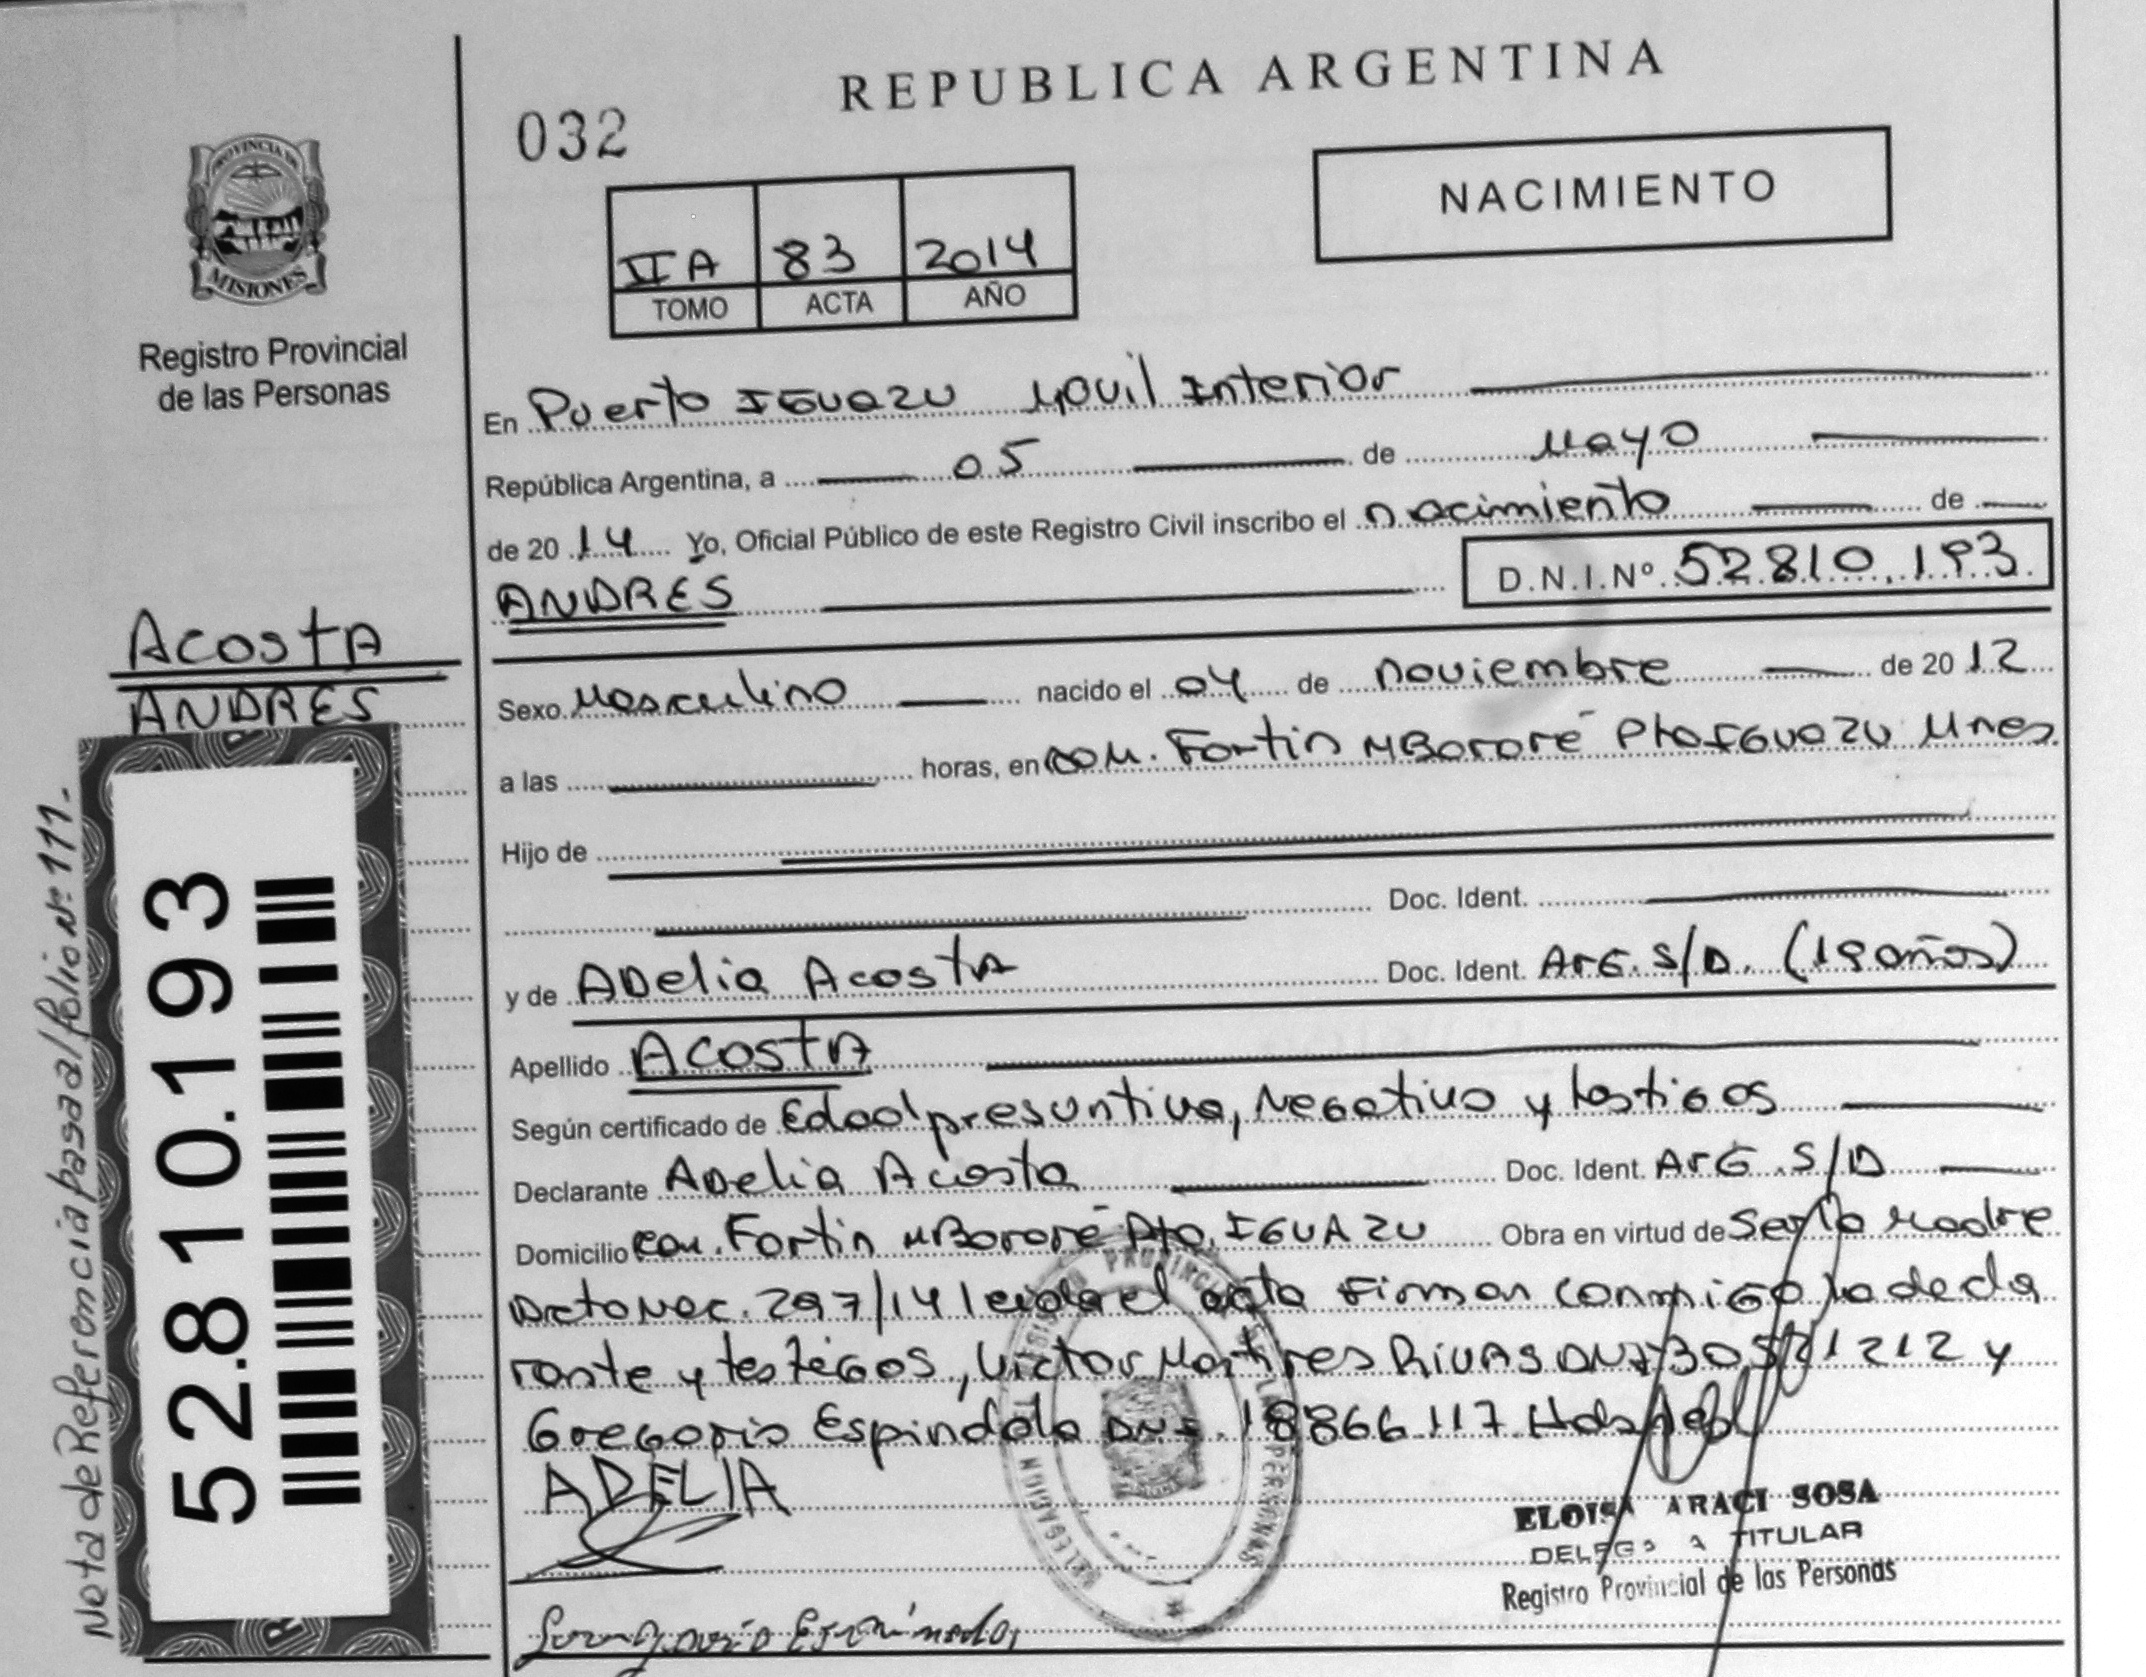 REPUBLICA ARGENTINA
032
NACIMIENTO
PROVINCIA DE
MISIONES
Registro Provincial
de las Personas
IIA 83 2014
TOMO ACTA AÑO
En Puerto IGUAZU Movil Interior
República Argentina, a 05 de Mayo
de 2014 Yo, Oficial Público de este Registro Civil inscribo el nacimiento de
ANDRES D.N.I.Nº 52.810.193
Acosta
ANDRES
Sexo Masculino nacido el 04 de noviembre de 2012
a las horas, en com. Fortin MBororé Pto IGUAZU Mnes.
Hijo de
Doc. Ident.
y de ADelia Acosta Doc. Ident. ArG. S/D. (19 años)
Apellido Acosta
Según certificado de Edad presuntiva, Negativo y testigos
Declarante ADelia Acosta Doc. Ident. ArG. S/D
Domicilio com. Fortin MBororé Pto. IGUAZU Obra en virtud de ser la Madre
Dcto Nac. 297/14 leida el acta Firman conmigo la decla
rante y testigos, Victor Martires RIVAS DNI 30.521212 y
Gregorio Espindola DNI. 18866117
ADELIA
ELOISA ARACI SOSA
TITULAR
Registro Provincial de las Personas
52.810.193
Nota de Referencia pasa al folio Nº 111.-